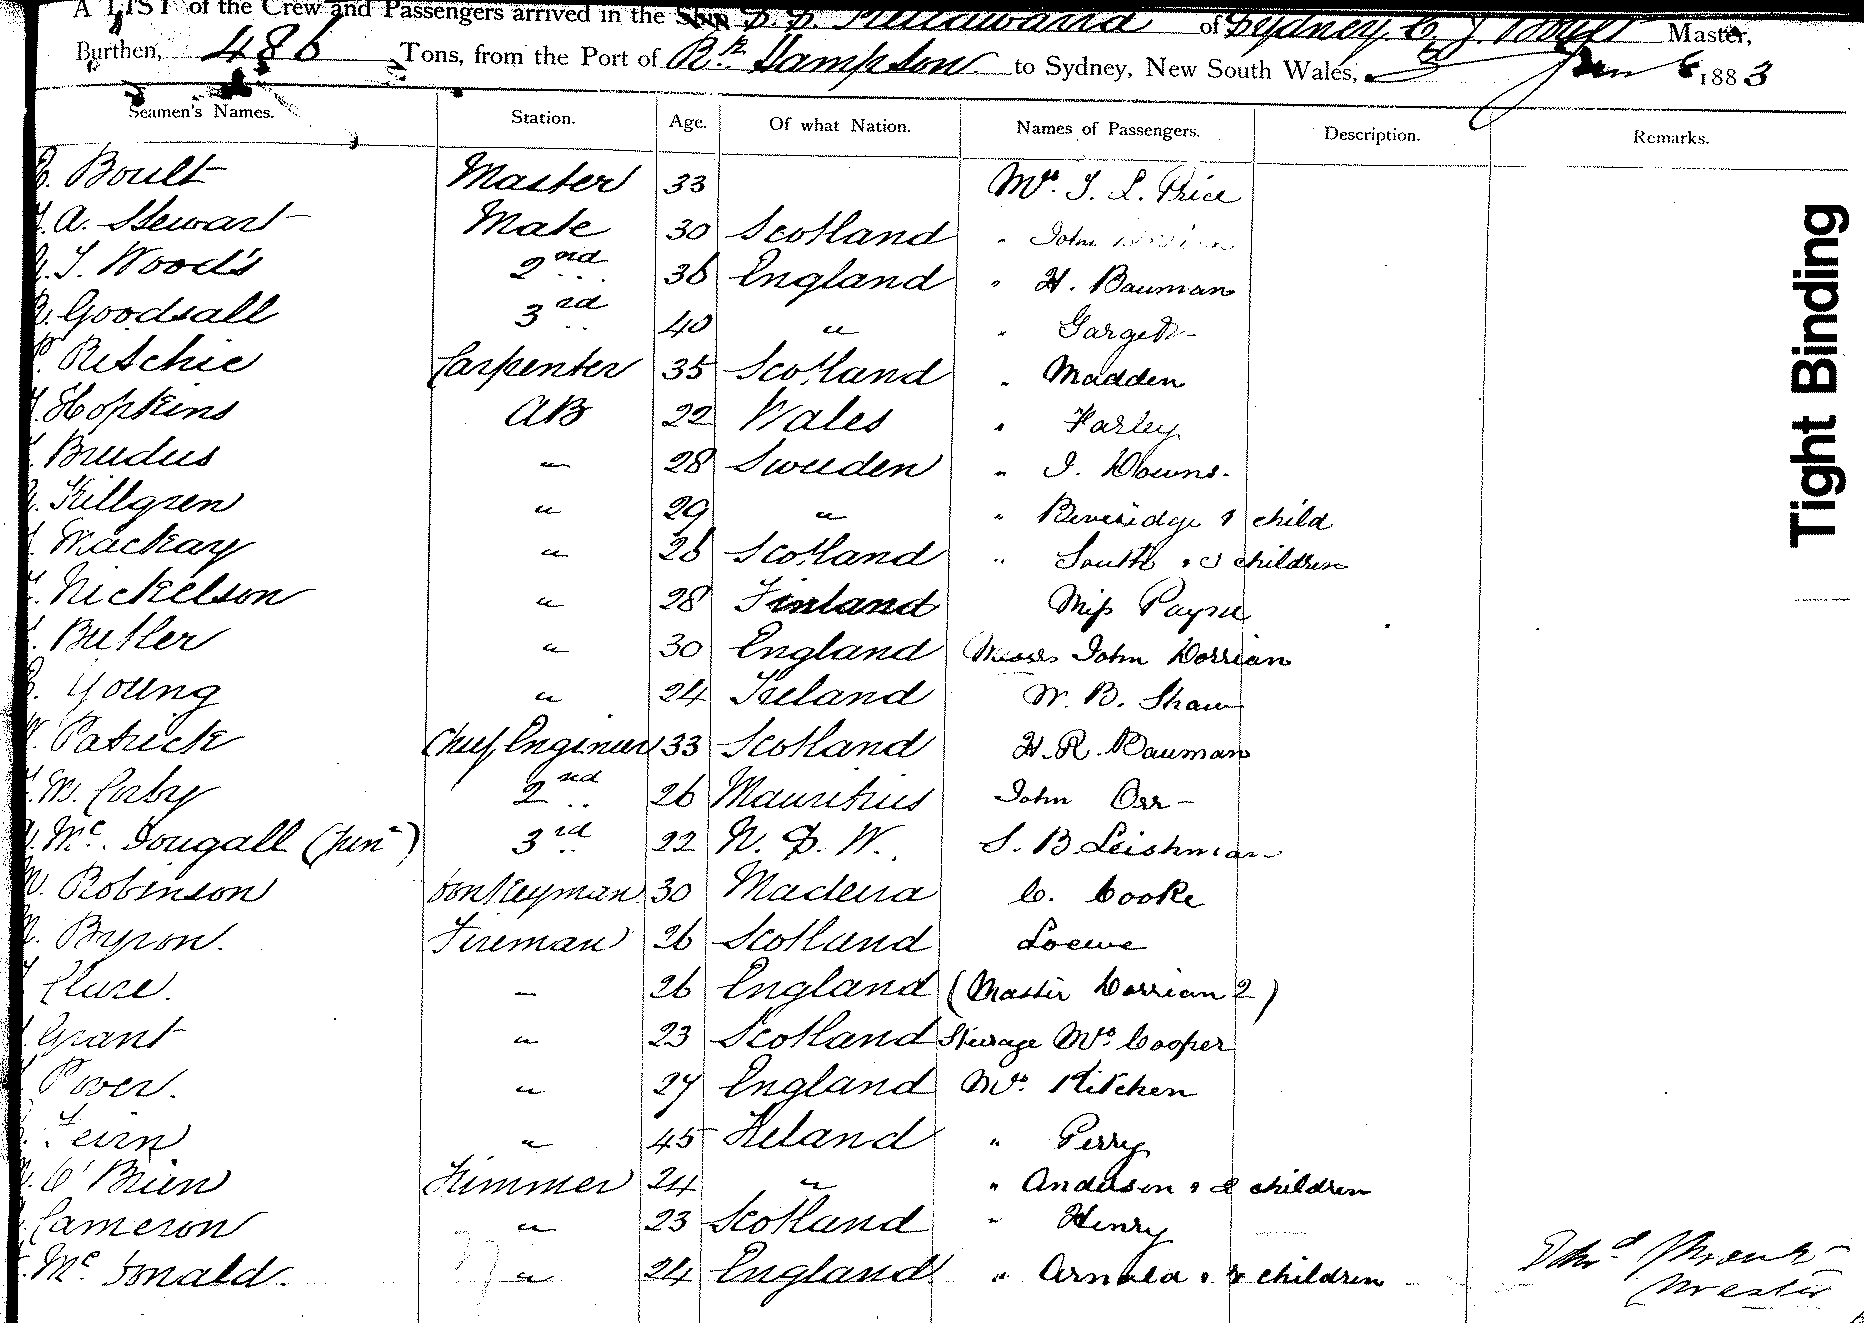 A LIST of the Crew and Passengers arrived in the Ship S.S. of Sydney C. J. Master,
Burthen, 486 Tons, from the Port of Rk. Hampton to Sydney, New South Wales, Jan 6 1883
Seamen's Names. Station. Age. Of what Nation. Names of Passengers. Description. Remarks.
Boult Master 33 Mrs. T. L. Price
A. Stewart Mate 30 Scotland " John
T. Woods 2nd " 36 England " H. Bauman
Goodsall 3rd " 40 " " Gargett
Ritchie Carpenter 35 Scotland " Madden
Hopkins AB 22 Wales " Farley
Brudus " 28 Sweeden " J. Downs.
Killgren " 29 " " Beveridge & child
Mackay " 26 Scotland " South & 3 children
Nickelson " 28 Finland Miss Payne
Butler " 30 England Messrs John Dorrian
Young " 24 Ireland W. B. Shaw
Patrick Chief Engineer 33 Scotland H. R. Bauman
M. Corby 2nd " 26 Mauritius John Orr
Mc. Dougall (Junr) 3rd " 22 N. S. W. S. B. Leishman
Robinson Donkeyman 30 Madeira C. Cooke
Byron. Fireman 26 Scotland Loewe
Cluse. " 26 England (Master Dorrian 2)
Grant " 23 Scotland Steerage Mrs. Cooper
Power. " 27 England Mrs. Kitchen
Feirn " 45 Ireland " Perry
O'Brien Trimmer 24 " " Anderson & 2 children
Cameron " 23 Scotland " Henry
Mc. Donald. " 24 England " Arnold & children
Tight Binding